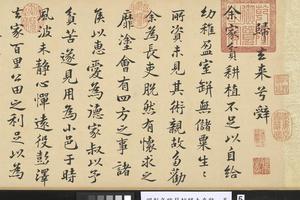 歸去來兮辭
余家貧耕植不足以自給
幼稚盈室缾無儲粟生生
所資未見其術親故多勸
余為長吏脫然有懷求之
靡塗會有四方之事諸
侯以惠愛為德家叔以予
貧苦遂見用為小邑于時
風波未静心憚遠役彭澤
去家百里公田之利足以為